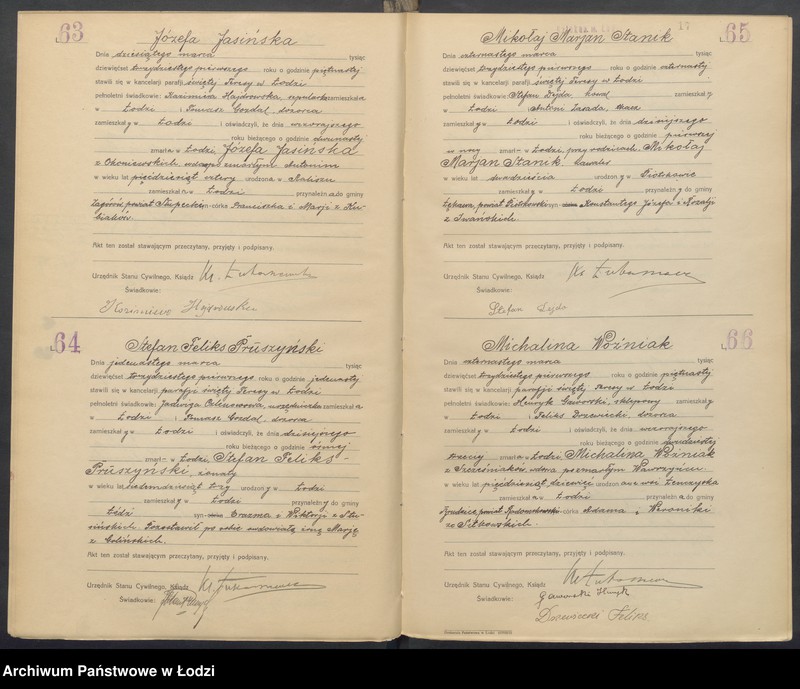 63
Józefa Jasińska
Dnia dziesiątego marca tysiąc
dziewięćset trzydziestego pierwszego roku o godzinie piętnastej
stawili się w kancelarji parafji świętej Teresy w Łodzi
pełnoletni świadkowie: Kazimiera Hajdrowska, zamieszkała
w Łodzi i Tomasz Gozdal, dozorca
zamieszkały w Łodzi i oświadczyli, że dnia wczorajszego
roku bieżącego o godzinie dwunastej
zmarła w Łodzi Józefa Jasińska
z wdowa po zmarłym Antonim
w wieku lat pięćdziesiąt cztery urodzona w Kaliszu
zamieszkała w Łodzi przynależna do gminy
Zagórów, powiat Słupecki córka Franciszka i Marji z
Akt ten został stawającym przeczytany, przyjęty i podpisany.
Urzędnik Stanu Cywilnego, Ksiądz
Świadkowie:
64
Stefan Feliks Pruszyński
Dnia jedenastego marca tysiąc
dziewięćset trzydziestego pierwszego roku o godzinie jedenastej
stawili się w kancelarji parafji świętej Teresy w Łodzi
pełnoletni świadkowie: Jadwiga urzędniczka zamieszkała
w Łodzi i Tomasz Gozdal, dozorca
zamieszkały w Łodzi i oświadczyli, że dnia dzisiejszego
roku bieżącego o godzinie ósmej
zmarł w Łodzi Stefan Feliks
Pruszyński, żonaty
w wieku lat siedemdziesiąt trzy urodzony w Łodzi
zamieszkały w Łodzi przynależny do gminy
Łódź syn Erazma i Wiktorji z
Pozostawił po sobie owdowiałą żonę Marję
z
Akt ten został stawającym przeczytany, przyjęty i podpisany.
Urzędnik Stanu Cywilnego, Ksiądz
Świadkowie:
17
65
Mikołaj Marjan Stanik
Dnia czternastego marca tysiąc
dziewięćset trzydziestego pierwszego roku o godzinie czternastej
stawili się w kancelarji parafji świętej Teresy w Łodzi
pełnoletni świadkowie: Stefan Dejda zamieszkały
w Łodzi i Antoni Zasada,
zamieszkały w Łodzi i oświadczyli, że dnia dzisiejszego
roku bieżącego o godzinie pierwszej
w nocy zmarł w Łodzi przy rodzicach Mikołaj
Marjan Stanik, kawaler
w wieku lat dwadzieścia urodzony w
zamieszkały w Łodzi przynależny do gminy
Łękawa, powiat Piotrkowski syn Konstantego Józefa i Rozalji
z Iwańskich.
Akt ten został stawającym przeczytany, przyjęty i podpisany.
Urzędnik Stanu Cywilnego, Ksiądz
Świadkowie:
Stefan Dejda
66
Michalina Woźniak
Dnia czternastego marca tysiąc
dziewięćset trzydziestego pierwszego roku o godzinie piętnastej
stawili się w kancelarji parafji świętej Teresy w Łodzi
pełnoletni świadkowie: Henryk Gaworski, sklepowy zamieszkały
w Łodzi i Feliks Brzewiecki dozorca
zamieszkały w Łodzi i oświadczyli, że dnia wczorajszego
roku bieżącego o godzinie dwudziestej
trzeciej zmarła w Łodzi Michalina Woźniak
z wdowa po zmarłym Wawrzyńcu
w wieku lat pięćdziesiąt dziewięć urodzona we wsi
zamieszkała w Łodzi przynależna do gminy
powiat Radomszkowski córka Adama i Weroniki
ze
Akt ten został stawającym przeczytany, przyjęty i podpisany.
Urzędnik Stanu Cywilnego, Ksiądz
Świadkowie:
Gaworski Henryk
Feliks
Archiwum Państwowe w Łodzi